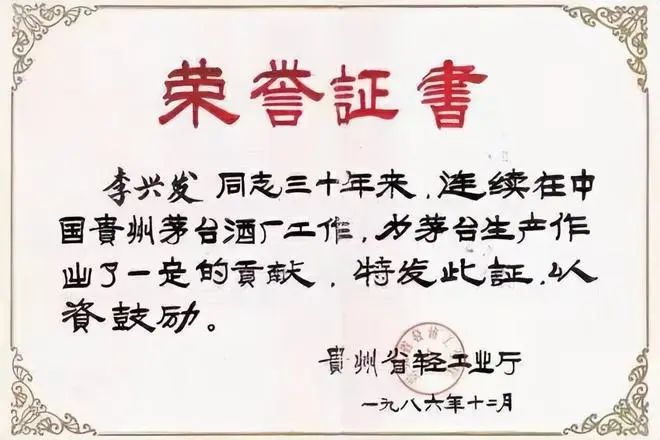 荣誉証書
李兴发 同志三十年来，连续在中
国貴州茅台酒厂工作，为茅台生产作
出了一定的贡献，特发此証，以
資鼓励。
貴州省轻工业厅
一九八六年十二月